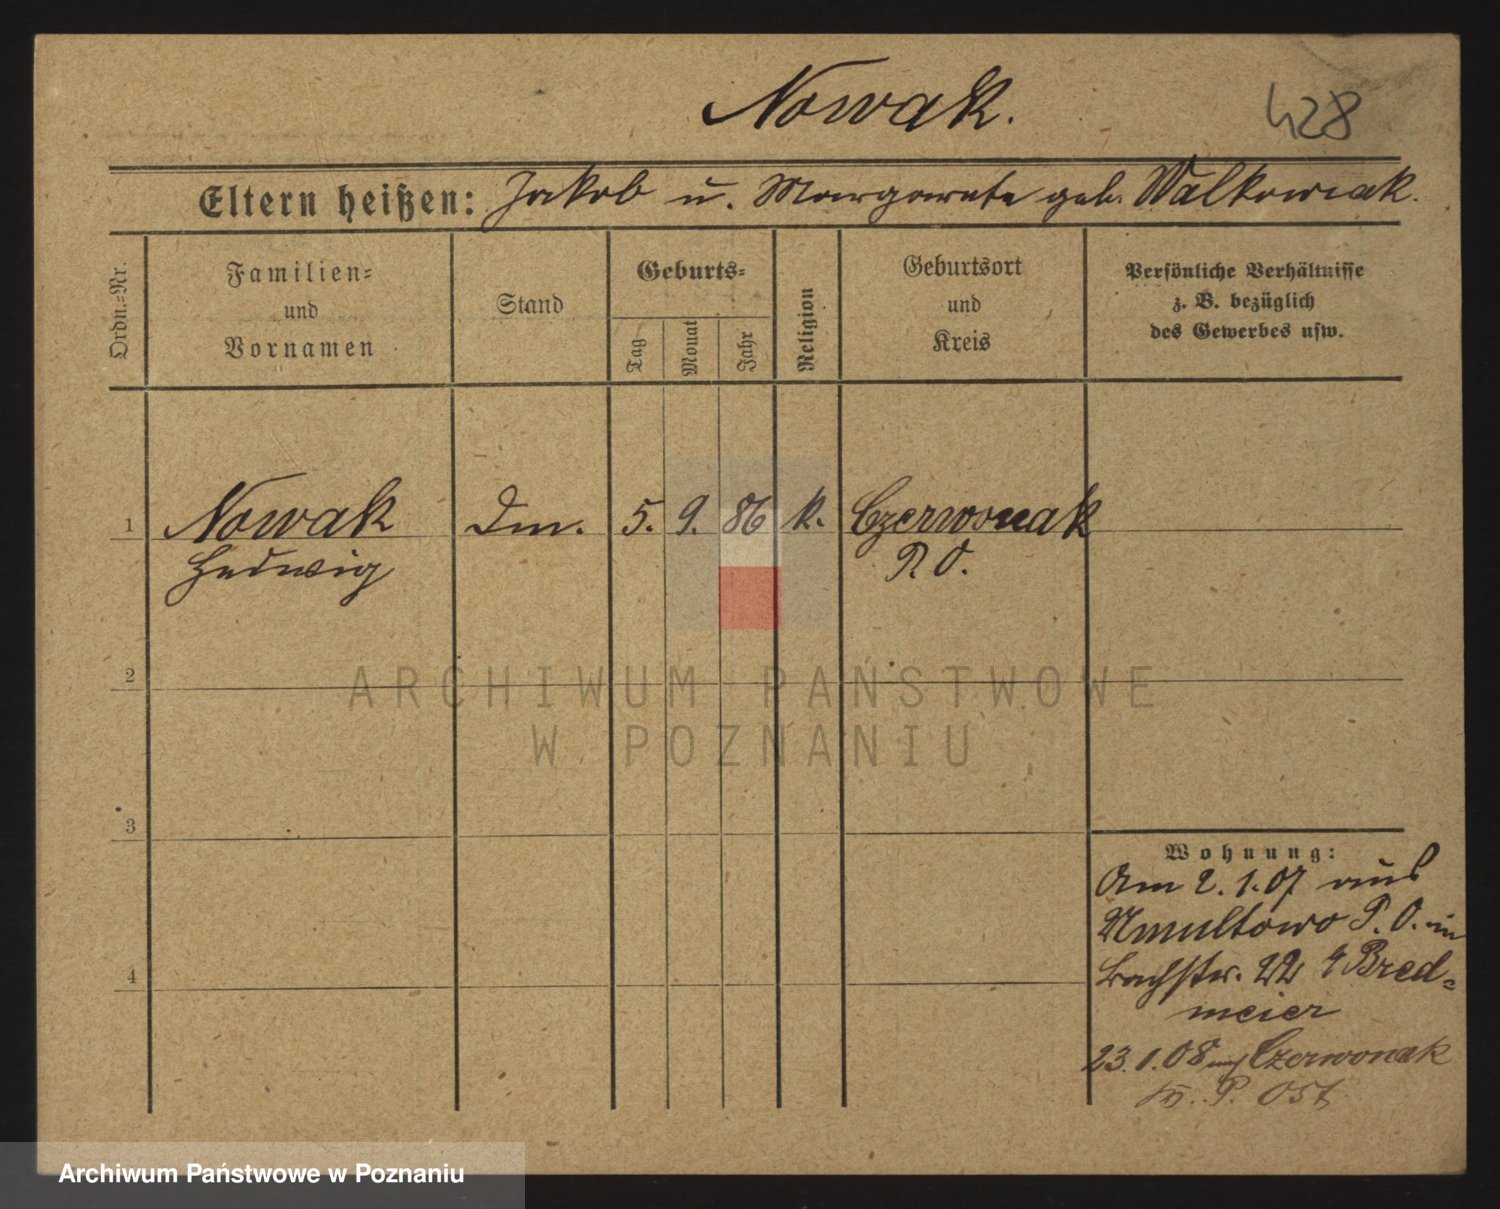 Nowak.
428
Eltern heißen: Jakob u. Margarete geb. Walkowiak.
Ordn.=Nr.
Familien=
und
Vornamen
Stand
Geburts=
Tag
Monat
Jahr
Religion
Geburtsort
und
Kreis
Persönliche Verhältnisse
z. B. bezüglich
des Gewerbes usw.
1 Nowak Dm. 5. 9. 86 k. Czerwonak
Hedwig P. O.
2
ARCHIWUM PAŃSTWOWE
W POZNANIU
3
Wohnung:
Am 2. 1. 07 aus
Umultowo P. O. in
Bachstr. 22 Bred=
4
meier
23. 1. 08 Czerwonak
P. Ost
Archiwum Państwowe w Poznaniu